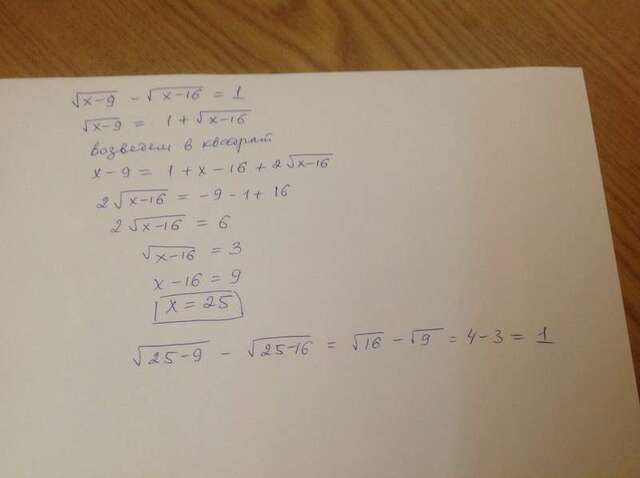 √x-9 - √x-16 = 1
√x-9 = 1 + √x-16
возведем в квадрат
x - 9 = 1 + x - 16 + 2√x-16
2√x-16 = -9 - 1 + 16
2√x-16 = 6
√x-16 = 3
x - 16 = 9
x = 25
√25-9 - √25-16 = √16 - √9 = 4 - 3 = 1